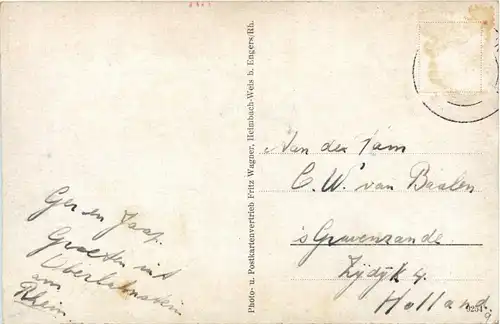 Ger en Jaap.
Groeten uit
Oberlahnstein
am
Rhein
Photo- u. Postkartenvertrieb Fritz Wagner, Heimbach-Weis b. Engers/Rh.
Aan de Fam
C. W. van Baalen
's Gravenzande
Zijdijk 4
Holland
9254